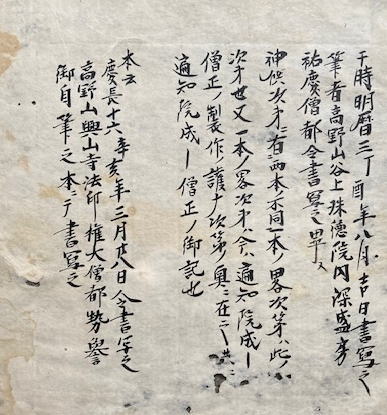 于時明暦三丁酉年八月吉日書寫之
筆者高野山谷上珠徳院内深盛房
祐慶僧都令書寫之畢
神供次第ニ有両本不同一本ノ畧次第ハ此ノ
次才也又一本ノ畧次才ハ令ハ遍知院成ー
僧正ノ製作護ナ次第ノ奥ニ在之
遍知院成ー僧正ノ御記也
本云
慶長十六辛亥年三月廿八日令書写之
高野山興山寺法印權大僧都勢譽
御自筆之本ニテ書寫之